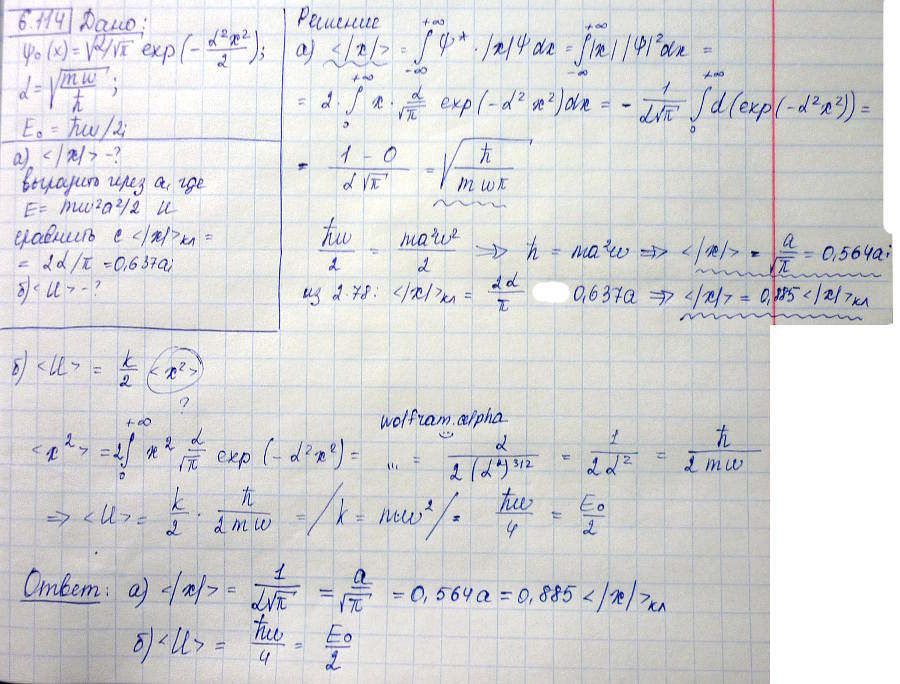 6.114 Дано:
ψ₀(x) = √(α/√π) exp(-α²x²/2);
α = √(mω/ħ);
E₀ = ħω/2;
а) <|x|> - ?
выразить через a, где
E = mω²a²/2 и
сравнить с <|x|>кл =
= 2α/π = 0,637a;
б) <U> - ?
Решение
а) <|x|> = ∫₋∞^+∞ ψ* · |x|ψ dx = ∫₋∞^+∞ |x| |ψ|² dx =
= 2 · ∫₀^+∞ x · α/√π exp(-α²x²)dx = - 1/(α√π) ∫₀^+∞ d(exp(-α²x²)) =
= (1 - 0)/(α√π) = √(ħ/(mωπ))
ħω/2 = ma²ω²/2 => ħ = ma²ω => <|x|> = a/√π = 0,564a;
из 2.78: <|x|>кл = 2α/π 0,637a => <|x|> = 0,885 <|x|>кл
б) <U> = k/2 <x²>
?
wolfram.alpha
<x²> = 2∫₀^+∞ x² α/√π exp(-α²x²) = ... = α/(2(α²)^3/2) = 1/(2α²) = ħ/(2mω)
=> <U> = k/2 · ħ/(2mω) = /k = mω²/ = ħω/4 = E₀/2
Ответ: а) <|x|> = 1/(α√π) = a/√π = 0,564a = 0,885 <|x|>кл
б) <U> = ħω/4 = E₀/2